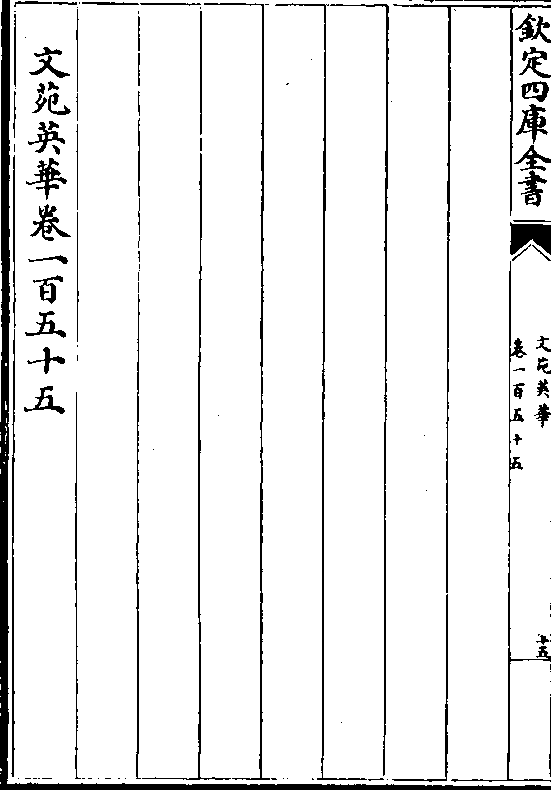 欽定四庫全書
文苑英華
卷一百五十五
十五
文苑英華卷一百五十五